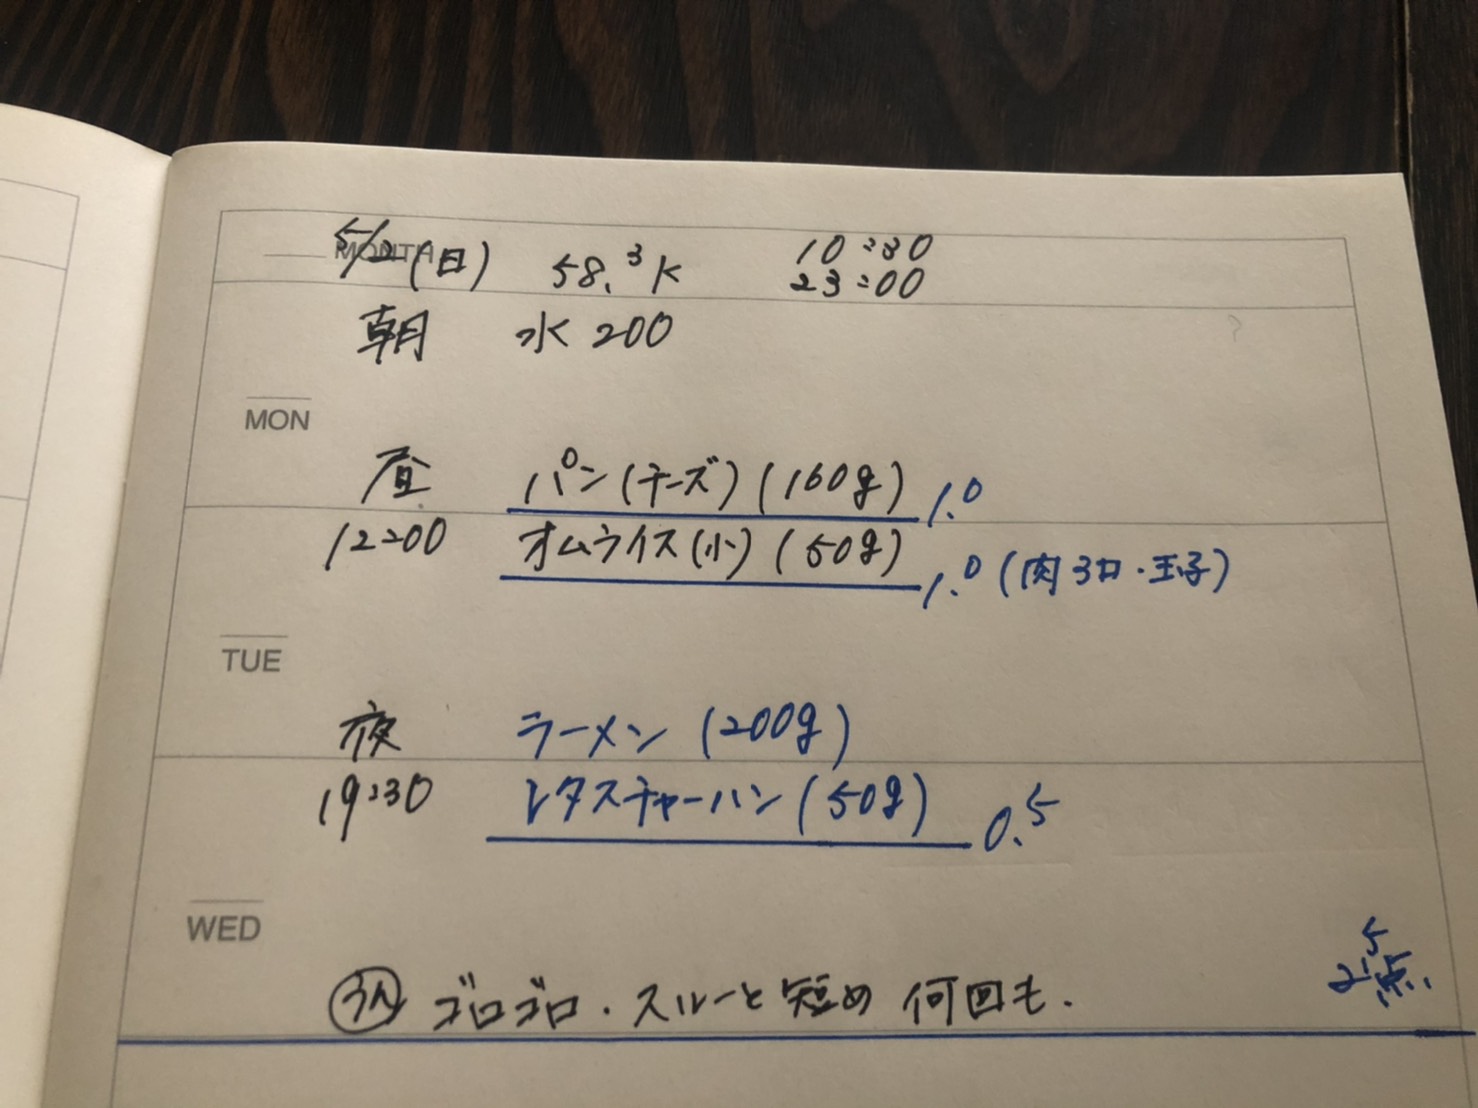 MONTH
5/2(日) 58.3K 10:30
23:00
朝 水 200
MON
昼 パン(チーズ)(160g) 1.0
12:00 オムライス(小)(50g) 1.0(肉3口・玉子)
TUE
夜 ラーメン(200g)
19:30 レタスチャーハン(50g) 0.5
WED
うん ゴロゴロ.スルーと短め 何回も.
2.5点.